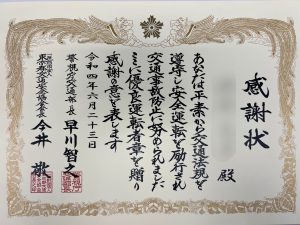 感謝状
殿
あなたは平素から交通法規を
遵守し安全運転を励行され
交通事故防止に努められました
ここに優良運転者章を贈り
感謝の意を表します
令和四年六月二十三日
警視庁交通部長 早川智之
会長 今井 敬